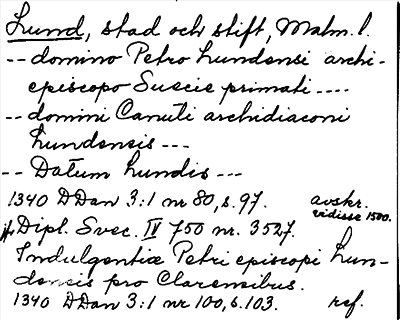 Lund, stad och stift, Malm. l.
-- domino Petro Lundensi archi-
episcopo Suecie primati ----
-- domini Canuti archidiaconi
Lundensis ---
-- Datum Lundis ---
1340 DDan 3:1 nr 80, s. 97. avskr.
vidisse 1500.
jf. Dipl. Svec. IV 750 nr. 3527.
Indulgentiæ Petri episcopi Lun-
densis pro Clarensibus.
1340 DDan 3:1 nr 100, s. 103. ref.